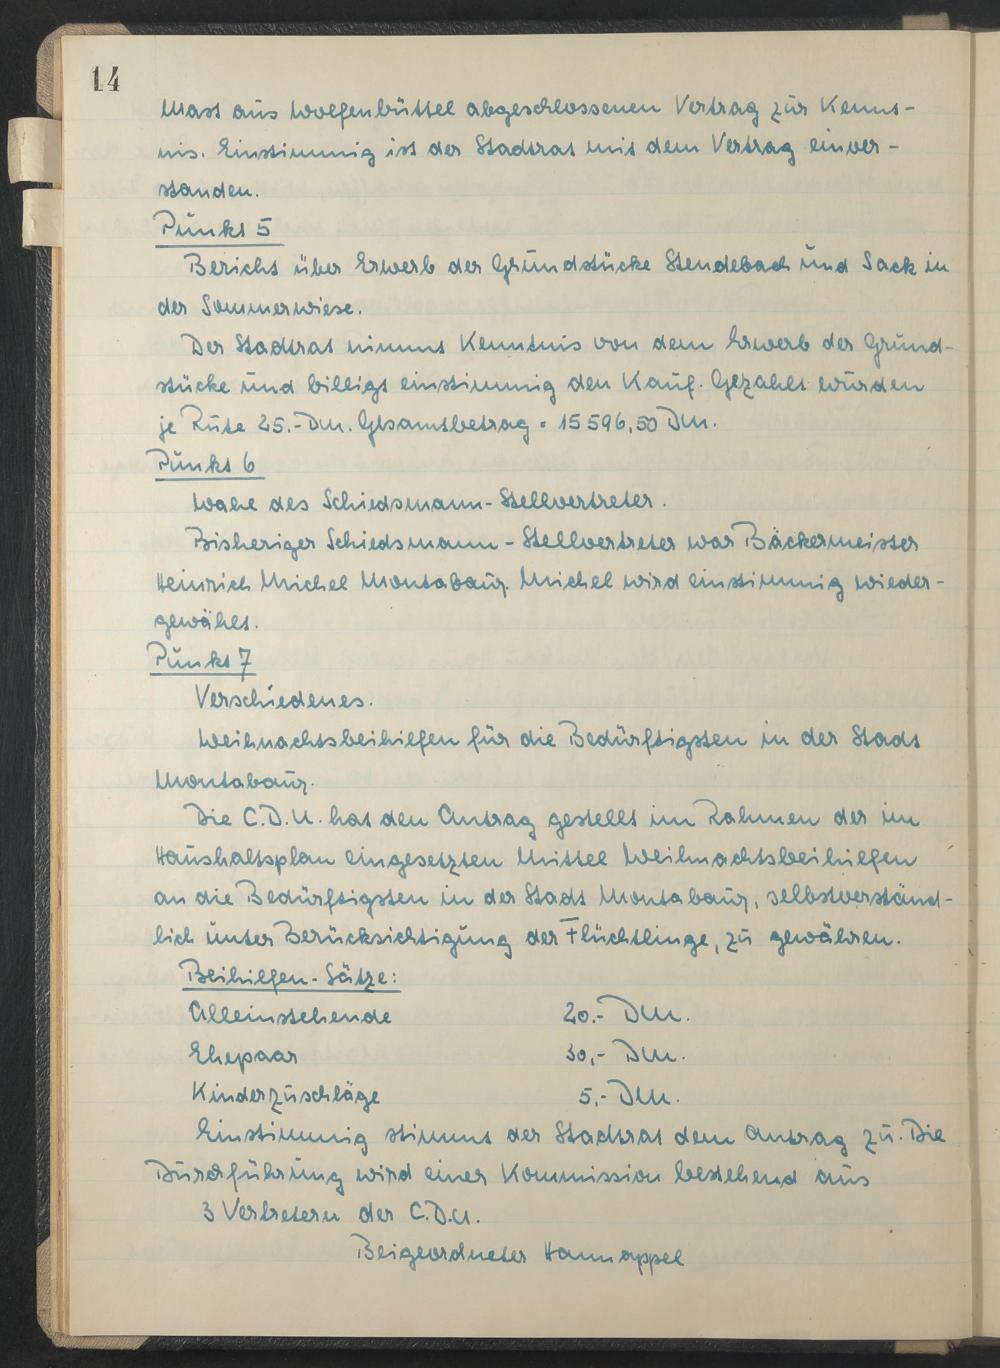 14
Mass aus Wolfenbüttel abgeschlossenen Vertrag zur Kennt-
nis. Einstimmig ist der Stadtrat mit dem Vertrag einver-
standen.
Punkt 5
Bericht über Erwerb der Grundstücke Stendebach und Sack in
der Sommerwiese.
Der Stadtrat nimmt Kenntnis von dem Erwerb der Grund-
stücke und billigt einstimmig den Kauf. Gezahlt wurden
je Rute 25.- DM. Gesamtbetrag = 15 596,50 DM.
Punkt 6
Wahl des Schiedsmann-Stellvertreter.
Bisheriger Schiedsmann-Stellvertreter war Bäckermeister
Heinrich Michel Montabaur. Michel wird einstimmig wieder-
gewählt.
Punkt 7
Verschiedenes.
Weihnachtsbeihilfen für die Bedürftigsten in der Stadt
Montabaur.
Die C.D.U. hat den Antrag gestellt im Rahmen der im
Haushaltsplan eingesetzten Mittel Weihnachtsbeihilfen
an die Bedürftigsten in der Stadt Montabaur, selbstverständ-
lich unter Berücksichtigung der Flüchtlinge, zu gewähren.
Beihilfen-Sätze:
Alleinstehende 20.- DM.
Ehepaar 30,- DM.
Kinderzuschläge 5,- DM.
Einstimmig stimmt der Stadtrat dem Antrag zu. Die
Durchführung wird einer Kommission bestehend aus
3 Vertretern der C.D.U.
Beigeordneter Hannappel